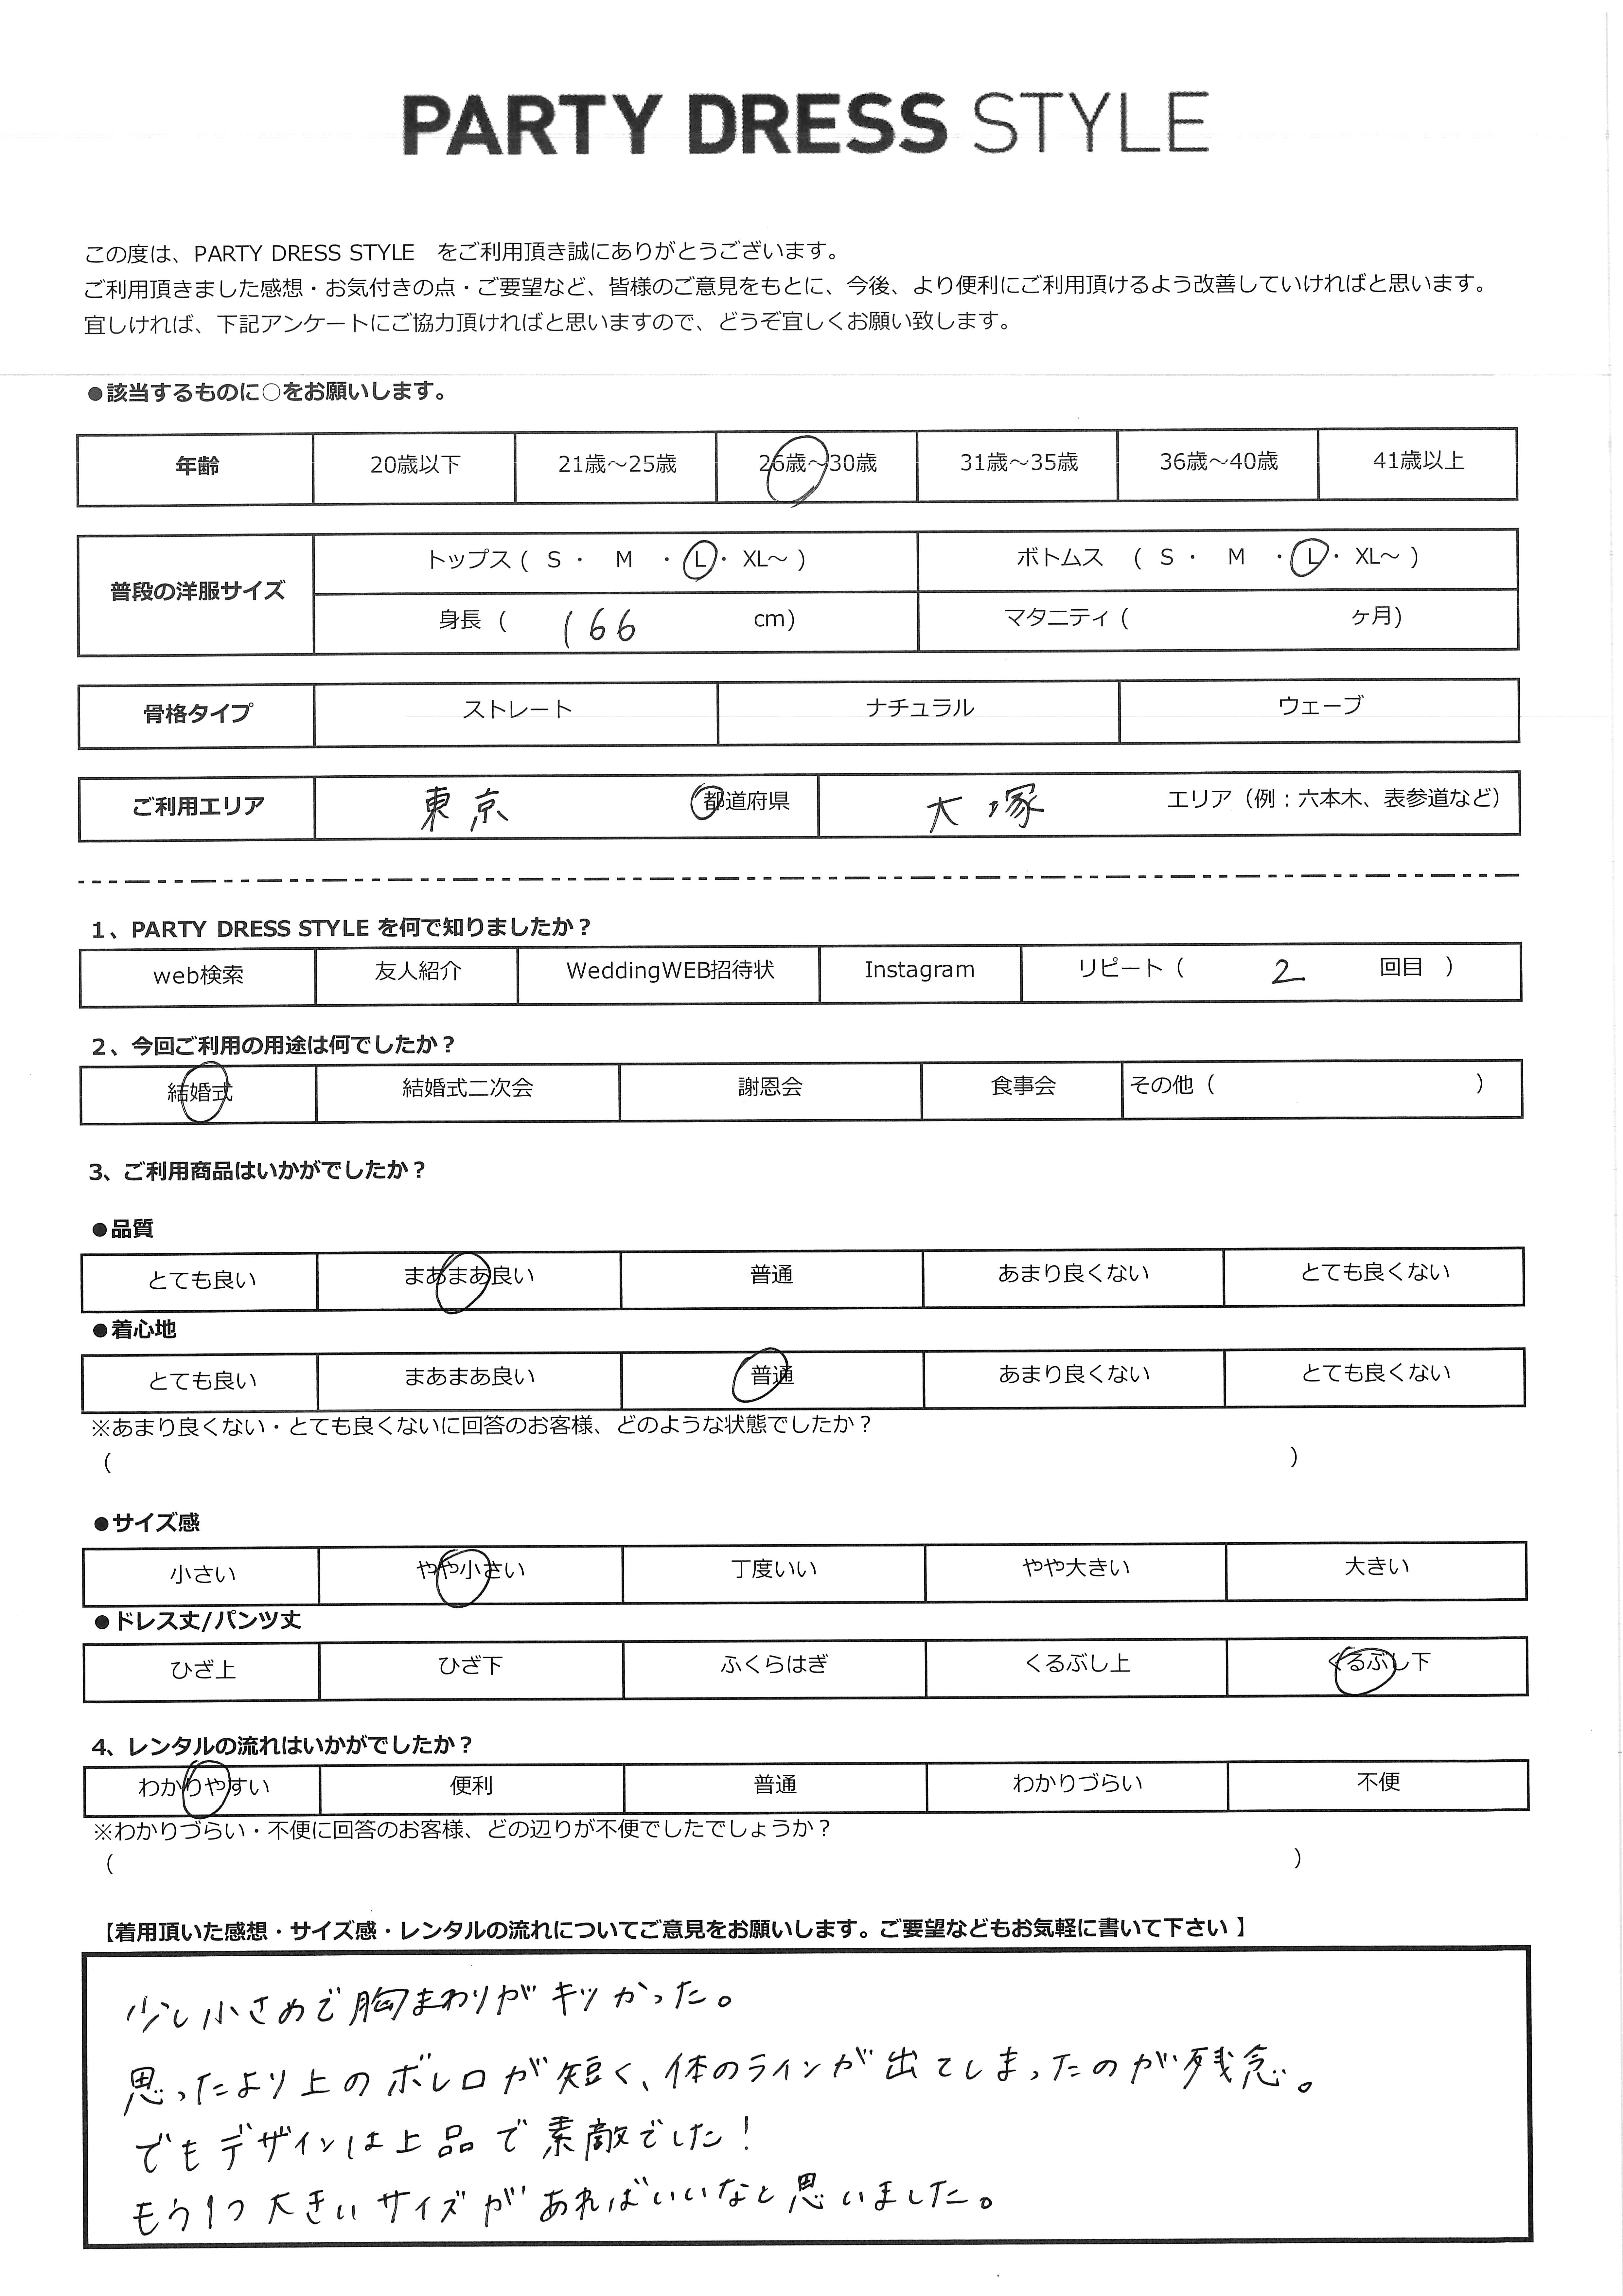 PARTY DRESS STYLE
この度は、PARTY DRESS STYLE　をご利用頂き誠にありがとうございます。
ご利用頂きました感想・お気付きの点・ご要望など、皆様のご意見をもとに、今後、より便利にご利用頂けるよう改善していければと思います。
宜しければ、下記アンケートにご協力頂ければと思いますので、どうぞ宜しくお願い致します。
●該当するものに○をお願いします。
年齢 20歳以下 21歳～25歳 26歳～30歳 31歳～35歳 36歳～40歳 41歳以上
普段の洋服サイズ トップス ( S ・ M ・ L ・ XL～ ) ボトムス ( S ・ M ・ L ・ XL～ )
身長 ( 166 cm) マタニティ ( ヶ月)
骨格タイプ ストレート ナチュラル ウェーブ
ご利用エリア 東京 都道府県 大塚 エリア（例：六本木、表参道など）
1、PARTY DRESS STYLE を何で知りましたか？
web検索 友人紹介 WeddingWEB招待状 Instagram リピート（ 2 回目 ）
2、今回ご利用の用途は何でしたか？
結婚式 結婚式二次会 謝恩会 食事会 その他（ ）
3、ご利用商品はいかがでしたか？
●品質
とても良い まあまあ良い 普通 あまり良くない とても良くない
●着心地
とても良い まあまあ良い 普通 あまり良くない とても良くない
※あまり良くない・とても良くないに回答のお客様、どのような状態でしたか？
（ ）
●サイズ感
小さい やや小さい 丁度いい やや大きい 大きい
●ドレス丈/パンツ丈
ひざ上 ひざ下 ふくらはぎ くるぶし上 くるぶし下
4、レンタルの流れはいかがでしたか？
わかりやすい 便利 普通 わかりづらい 不便
※わかりづらい・不便に回答のお客様、どの辺りが不便でしたでしょうか？
（ ）
【着用頂いた感想・サイズ感・レンタルの流れについてご意見をお願いします。ご要望などもお気軽に書いて下さい 】
少し小さめで胸まわりがキツかった。
思ったより上のボレロが短く、体のラインが出てしまったのが残念。
でもデザインは上品で素敵でした！
もう1つ大きいサイズがあればいいなと思いました。